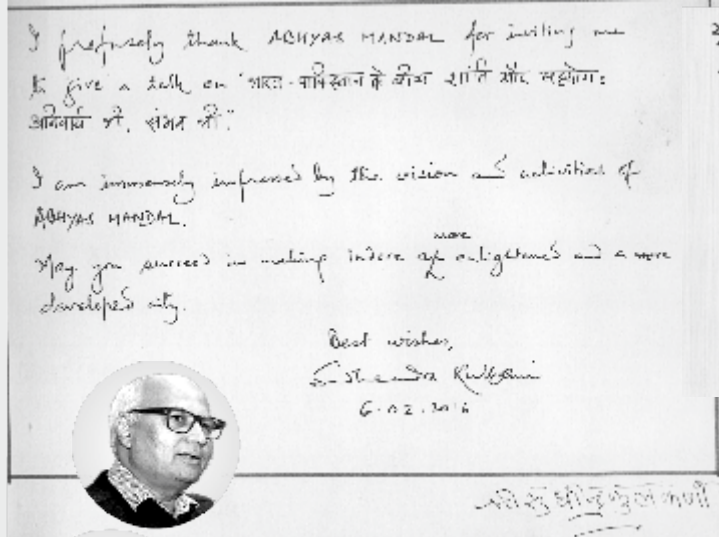 I profusely thank ABHYAS MANDAL for inviting me
to give a talk on "भारत-पाकिस्तान के बीच शांति और सहयोग:
अनिवार्य भी, संभव भी."
I am immensely impressed by the vision and activities of
ABHYAS MANDAL.
May you succeed in making Indore a more enlightened and a more
developed city.
Best wishes,
Sudheendra Kulkarni
6.02.2016
श्री सुधीन्द्र कुलकर्णी